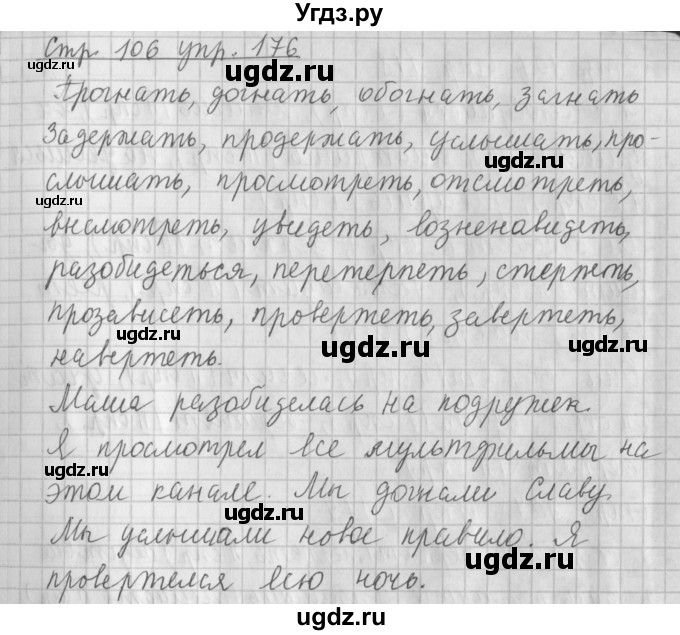 Угдз.ру
Стр. 106 упр. 176
Прогнать, догнать, обогнать, загнать
Задержать, продержать, услышать, про-
слышать, просмотреть, отсмотреть,
высмотреть, увидеть, возненавидеть,
разобидеться, перетерпеть, стерпеть,
прозависеть, провертеть, завертеть,
навертеть.
Маша разобиделась на подружек.
Я просмотрел все мультфильмы на
этом канале. Мы догнали Славу.
Мы услышали новое правило. Я
провертелся всю ночь.
ugdz.ru
ugdz.ru
ugdz.ru
ugdz.ru
ugdz.ru
ugdz.ru
ugdz.ru
ugdz.ru
ugdz.ru
ugdz.ru
ugdz.ru
ugdz.ru
ugdz.ru